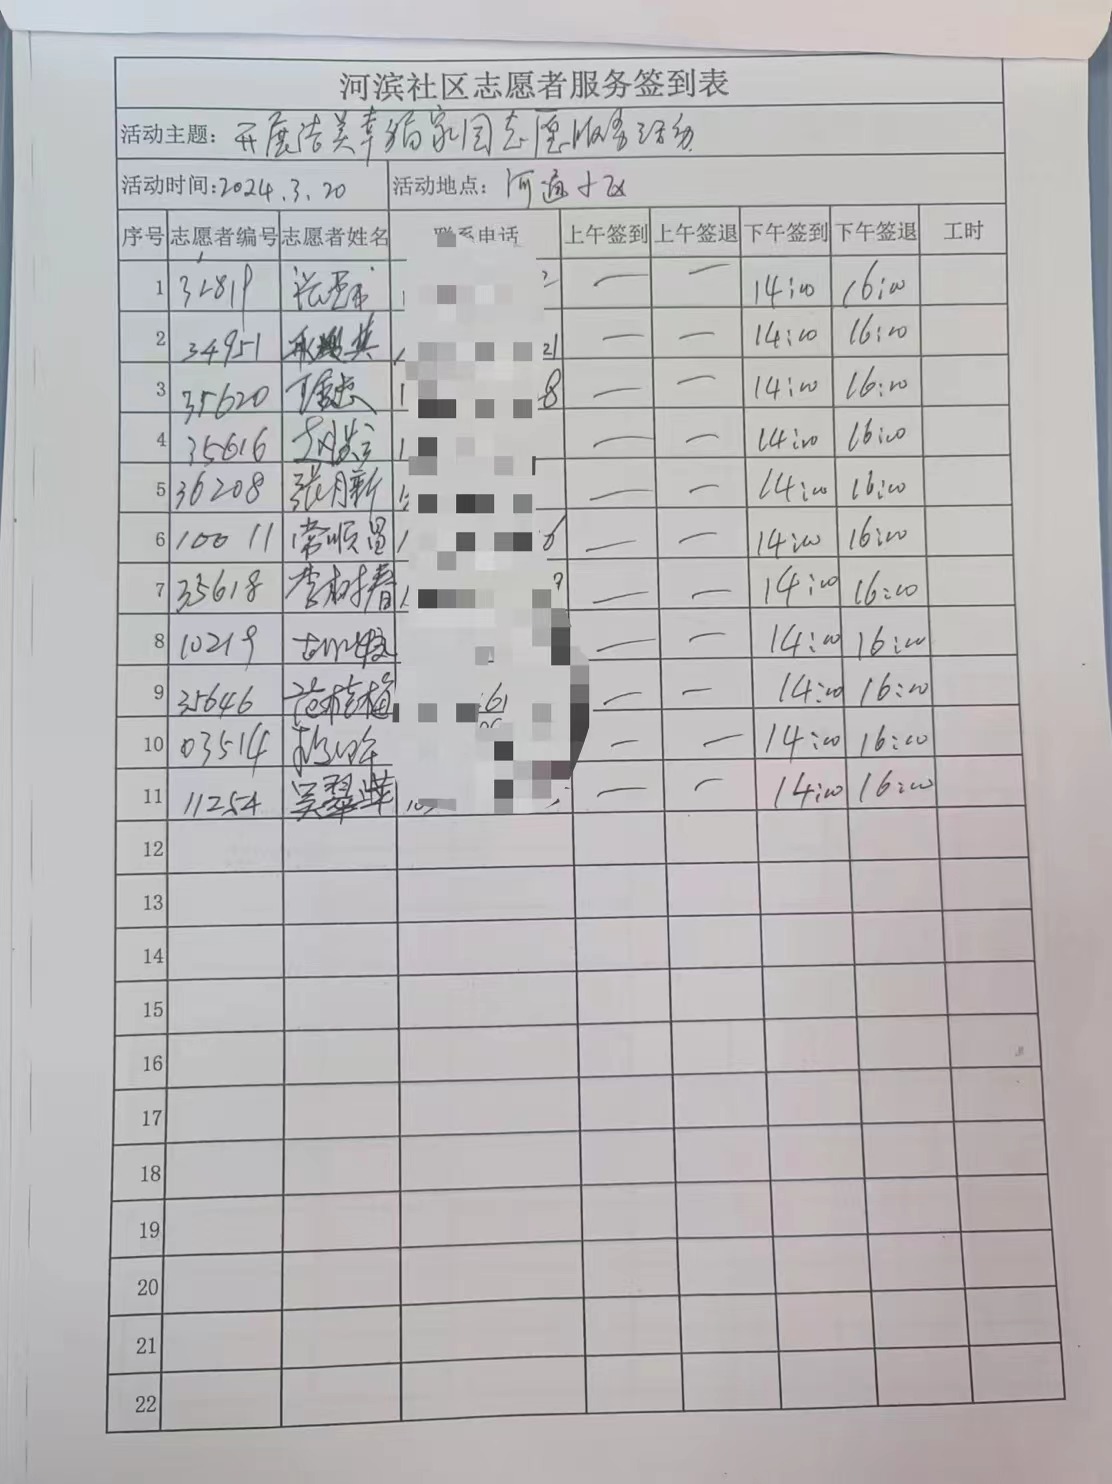 河滨社区志愿者服务签到表
活动主题：开展洁美幸福家园志愿服务活动
活动时间:2024.3.20 活动地点：河通小区
序号 志愿者编号 志愿者姓名 联系电话 上午签到 上午签退 下午签到 下午签退 工时
1 32819 — — 14:00 16:00
2 34951 21 — — 14:00 16:00
3 35620 8 — — 14:00 16:00
4 35616 — — 14:00 16:00
5 36208 张月新 — — 14:00 16:00
6 10011 常顺昌 6 — — 14:00 16:00
7 35618 李树春 — — 14:00 16:00
8 10219 — — 14:00 16:00
9 35646 范桂梅 61 — — 14:00 16:00
10 03514 — — 14:00 16:00
11 11254 吴翠苹 — — 14:00 16:00
12
13
14
15
16
17
18
19
20
21
22